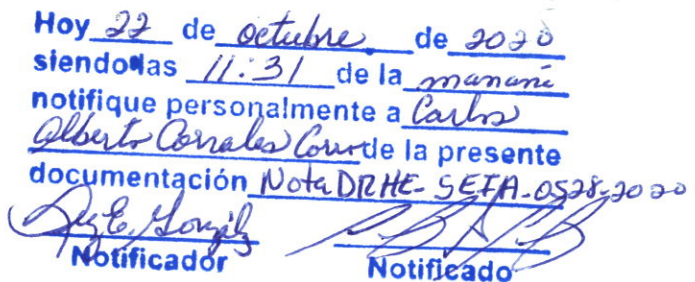 Hoy 22 de octubre de 2020
siendo las 11:31 de la manana
notifique personalmente a Carlos
Alberto Corrales de la presente
documentación Nota DRHE-SEIA-0528-2020
Notificador Notificado